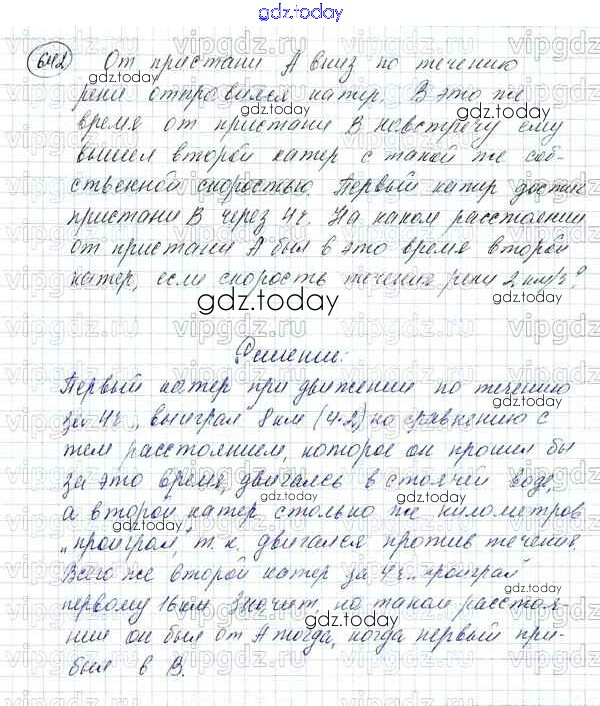 gdz.today
642 От пристани А вниз по течению
gdz.today
реки отправился катер. В это же
gdz.today
время от пристани В навстречу ему
вышел второй катер с такой же соб-
gdz.today
ственной скоростью. Первый катер достиг
пристани В через 4 ч. На каком расстоянии
gdz.today
от пристани А был в это время второй
катер, если скорость течения реки 2 км/ч?
gdz.today
gdz.today
Решение:
Первый катер при движении по течению
gdz.today
за 4ч „выиграл 8 км (4·2) по сравнению с
тем расстоянием, которое он прошел бы
gdz.today
за это время, двигаясь в стоячей воде,
gdz.today
а второй катер столько же километров
„проиграл", т.к. двигался против течения.
gdz.today
Всего же второй катер за 4ч „проиграл
первому 16 км. Значит, на таком расстоя-
gdz.today
нии он был от А тогда, когда первый при-
был в В.
gdz.today